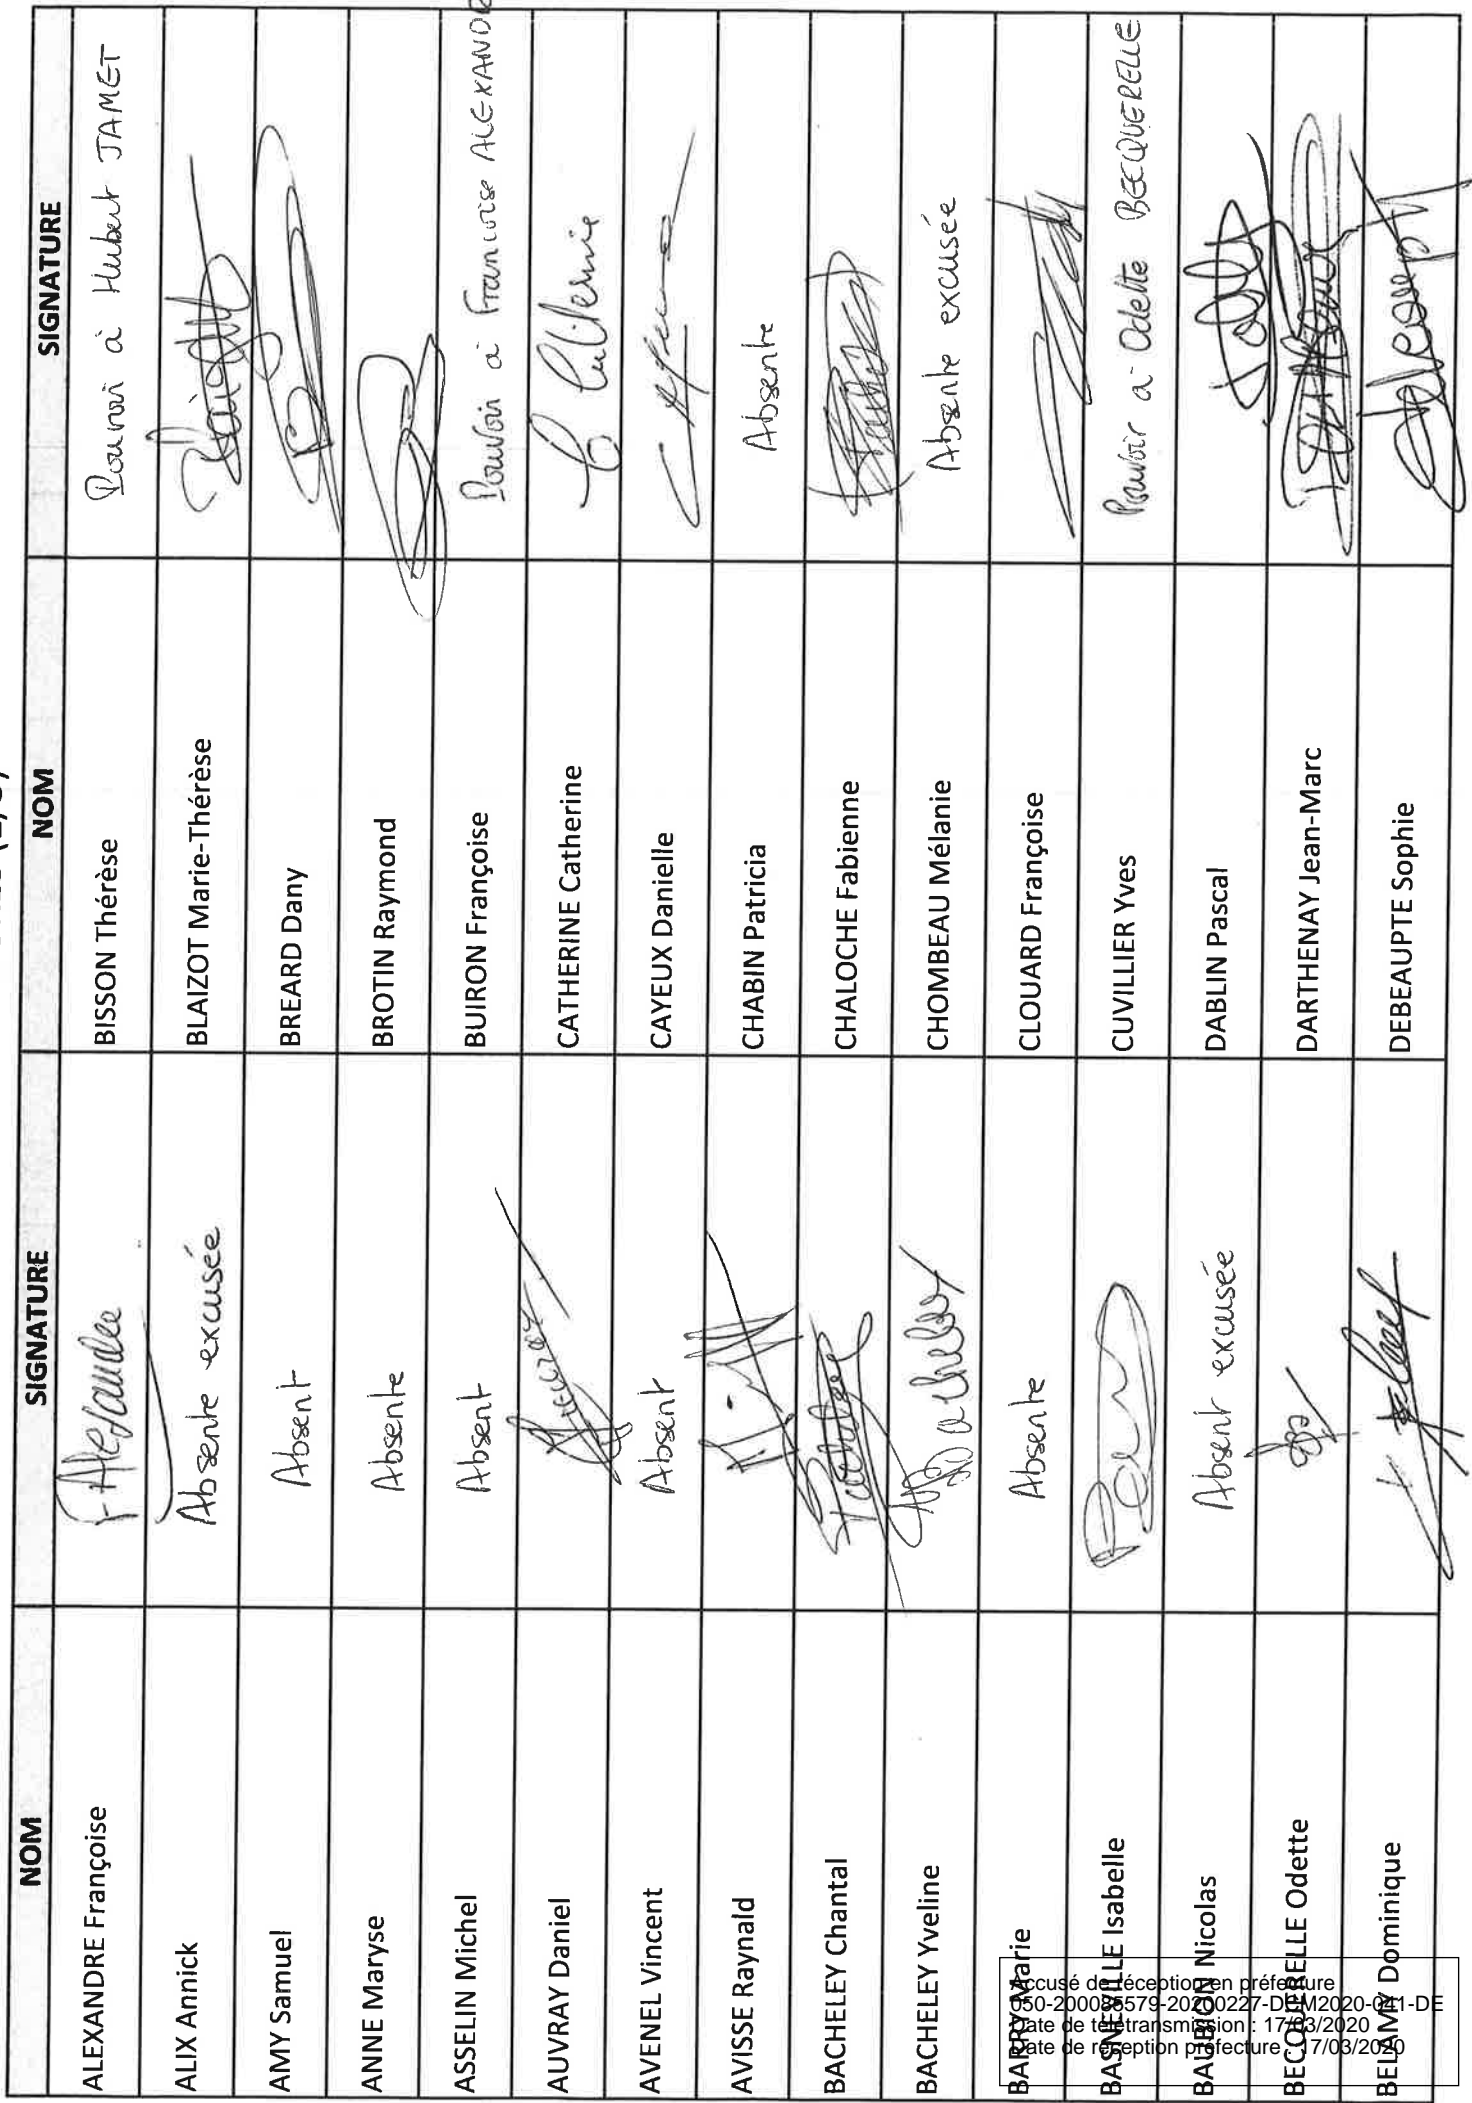 NOM SIGNATURE NOM SIGNATURE
ALEXANDRE Françoise F. Alexandre BISSON Thérèse Pouvoir à Hubert JAMET
ALIX Annick Absente excusée BLAIZOT Marie-Thérèse
AMY Samuel Absent BREARD Dany
ANNE Maryse Absente BROTIN Raymond
ASSELIN Michel Absent BUIRON Françoise Pouvoir à Francoise ALEXANDR
AUVRAY Daniel CATHERINE Catherine C Catherine
AVENEL Vincent Absent CAYEUX Danielle
AVISSE Raynald CHABIN Patricia Absente
BACHELEY Chantal CHALOCHE Fabienne
BACHELEY Yveline CHOMBEAU Mélanie Absente excusée
BARRY Marie Absente CLOUARD Françoise
BASNEVILLE Isabelle CUVILLIER Yves Pouvoir à Odette BECQUERELLE
BAUBION Nicolas Absent excusée DABLIN Pascal
BECQUERELLE Odette DARTHENAY Jean-Marc
BELAMY Dominique DEBEAUPTE Sophie
Accusé de réception en préfecture
Date de télétransmission : 17/03/2020
Date de réception préfecture : 17/03/2020